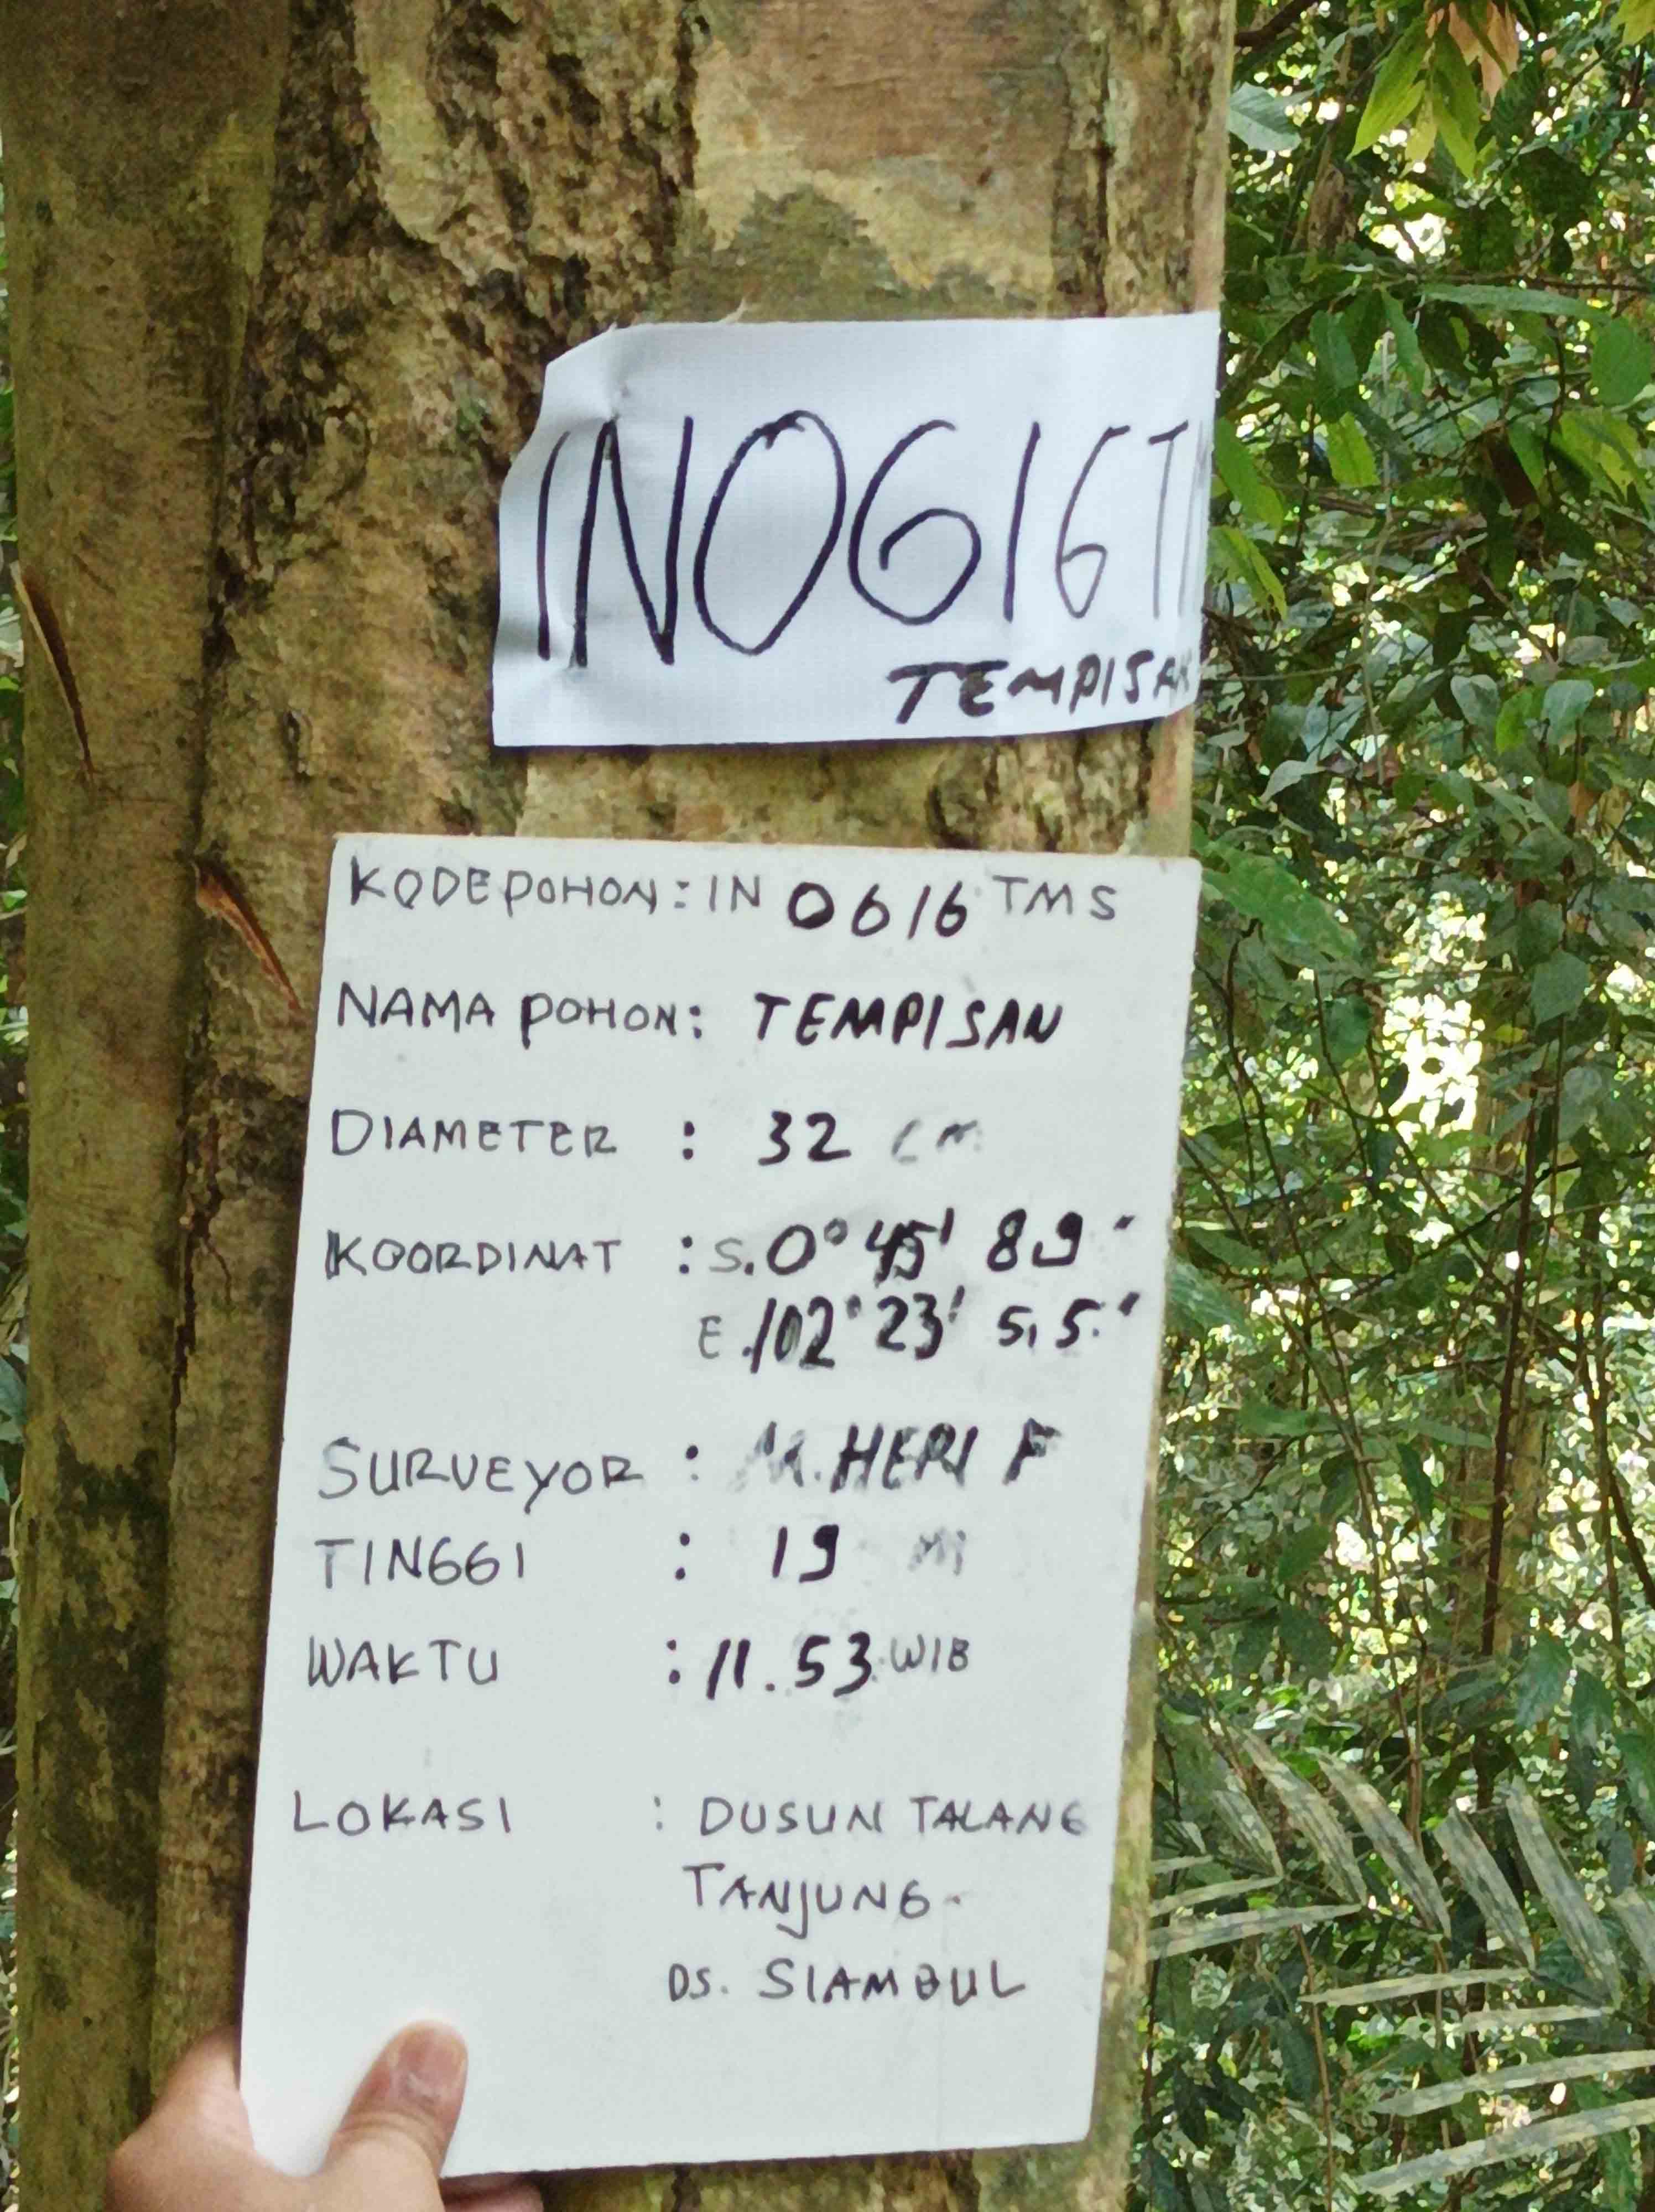 INO616T
TEMPISAN
KODE POHON : IN 0616 TMS
NAMA POHON : TEMPISAN
DIAMETER : 32 cm
KOORDINAT : S. 0° 45' 89"
E. 102° 23' 5,5."
SURVEYOR : M. HERI F
TINGGI : 19 M
WAKTU : 11.53 WIB
LOKASI : DUSUN TALANG
TANJUNG
DS. SIAMBUL